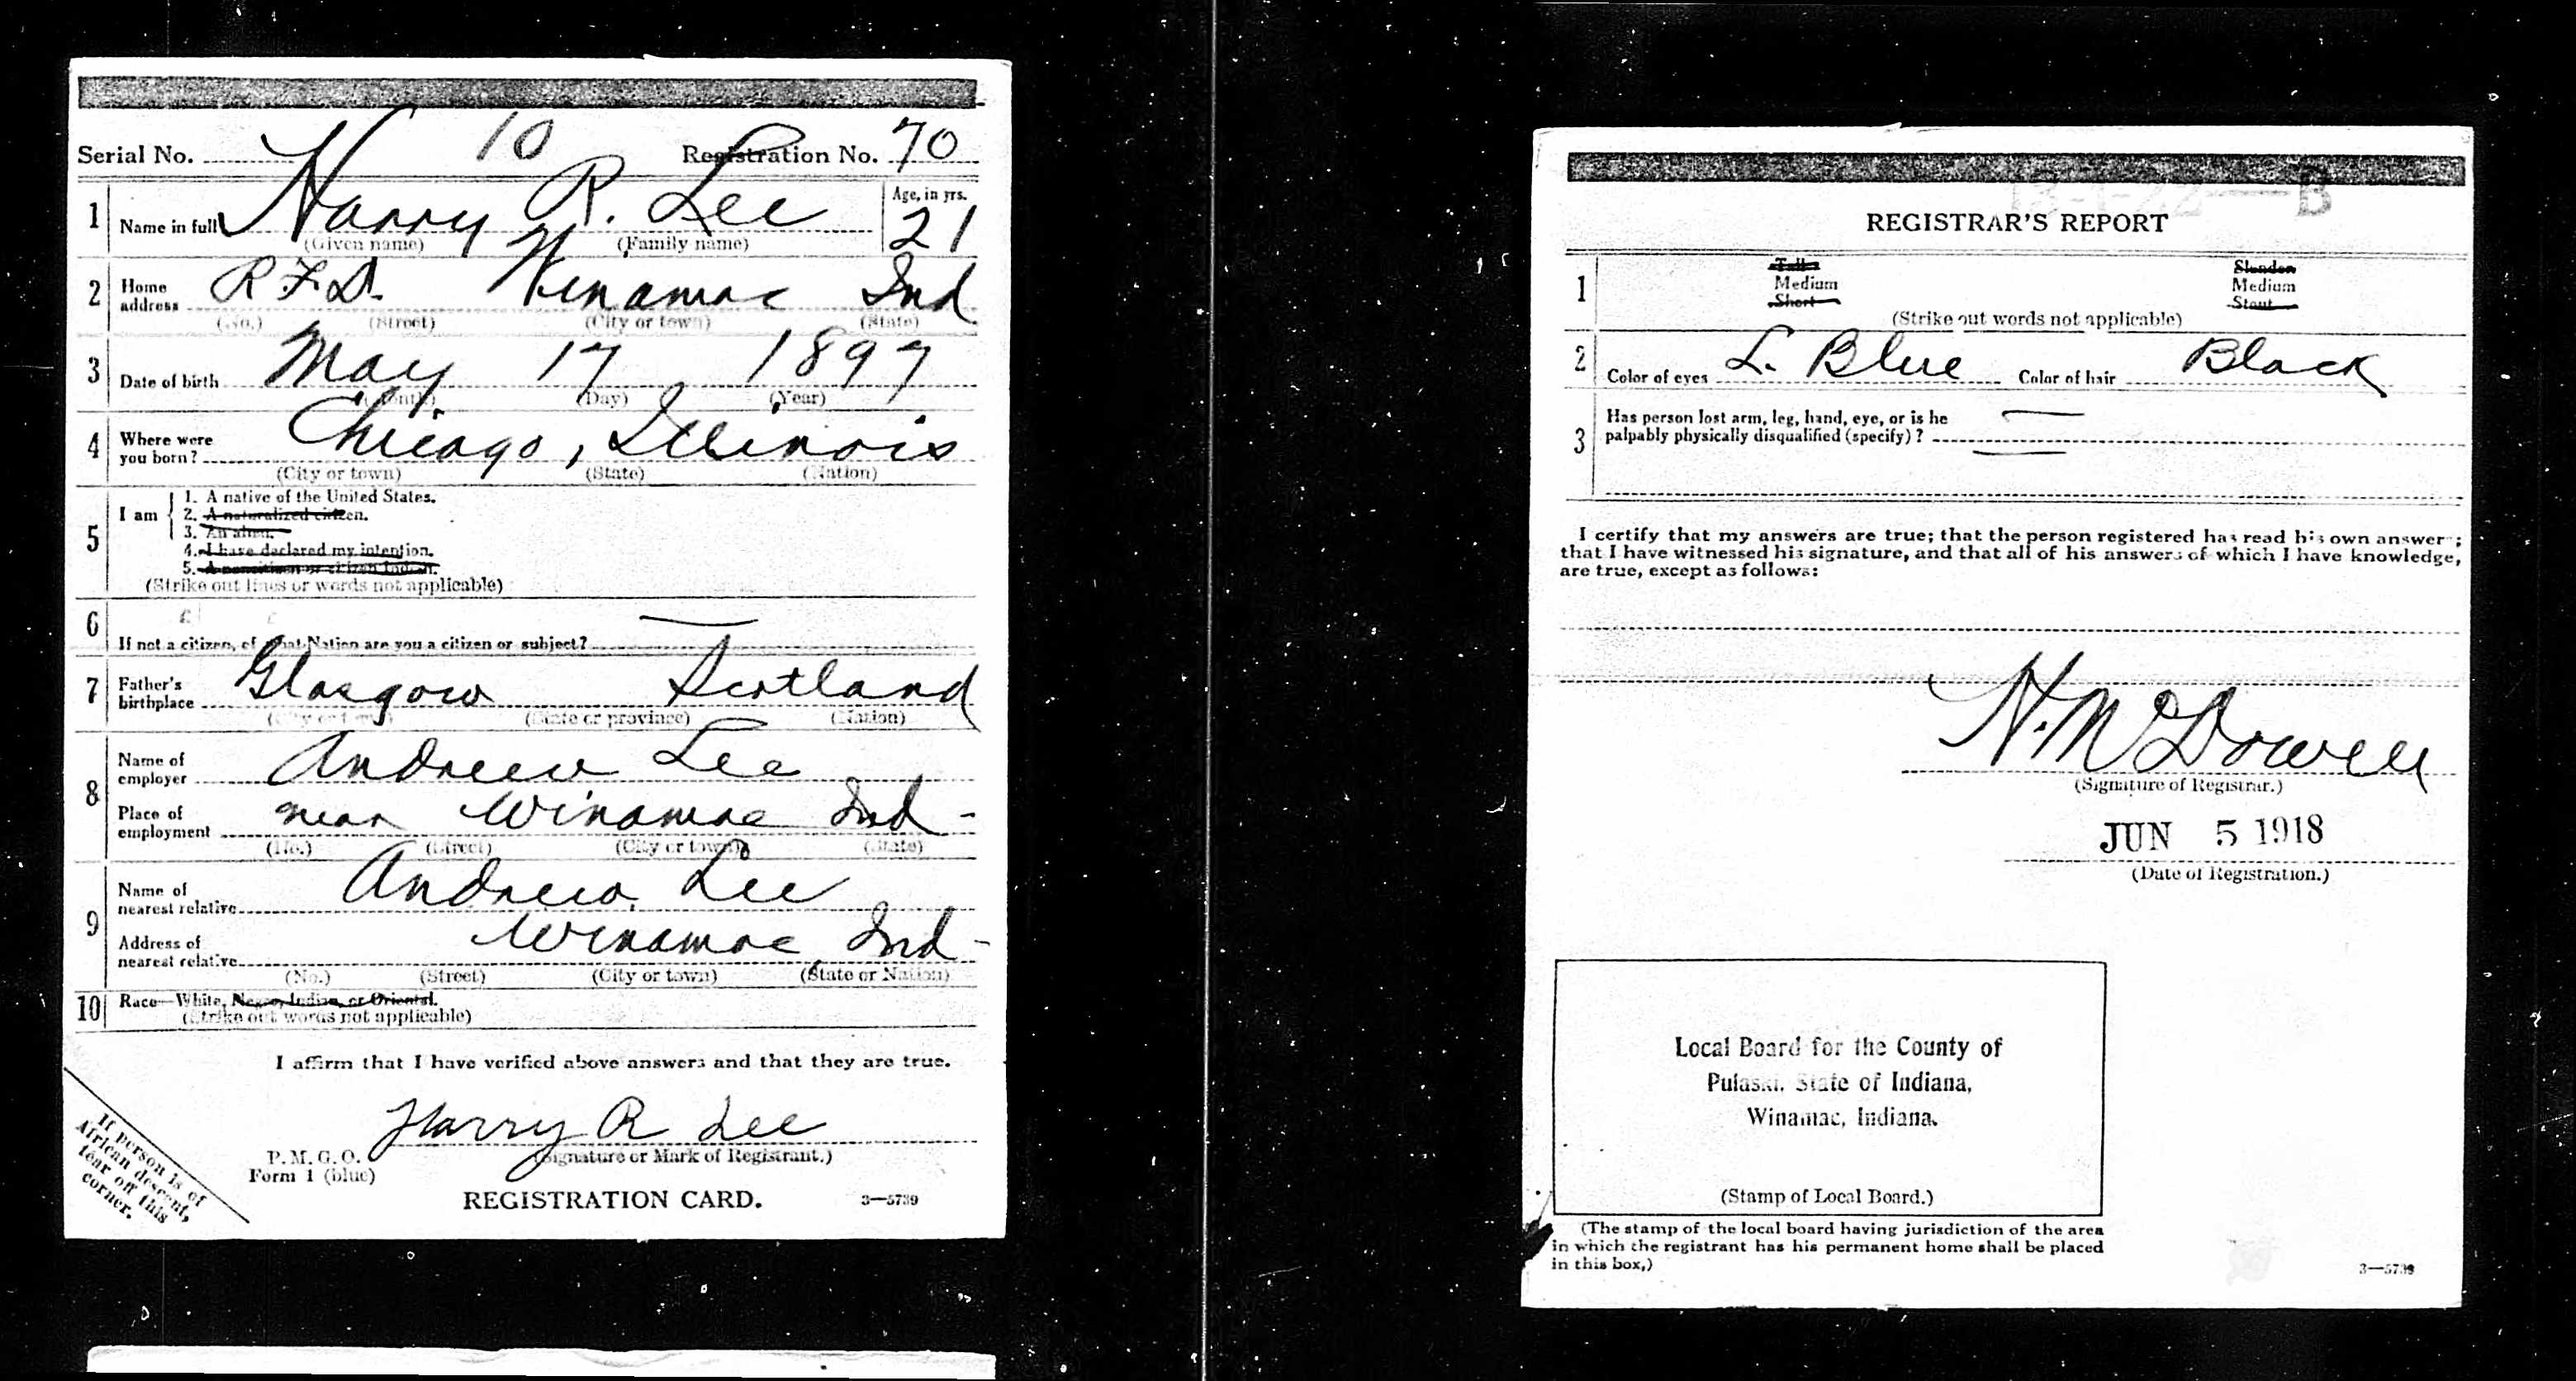 Serial No. 10 Registration No. 70
1 Name in full Harry R. Lee Age, in yrs. 21
(Given name) (Family name)
2 Home address R.F.D. Winamac Ind
(No.) (Street) (City or town) (State)
3 Date of birth May 17 1897
(Month) (Day) (Year)
4 Where were you born? Chicago, Illinois
(City or town) (State) (Nation)
5 I am
1. A native of the United States.
2. A naturalized citizen.
3. An alien.
4. I have declared my intention.
5. A noncitizen or citizen Indian.
(Strike out lines or words not applicable)
6 If not a citizen, of what Nation are you a citizen or subject? —
7 Father's birthplace Glasgow Scotland
(City or town) (State or province) (Nation)
8 Name of employer Andrew Lee
Place of employment near Winamac Ind-
(No.) (Street) (City or town) (State)
9 Name of nearest relative Andrew Lee
Address of nearest relative Winamac, Ind-
(No.) (Street) (City or town) (State or Nation)
10 Race—White, Negro, Indian, or Oriental.
(Strike out words not applicable)
I affirm that I have verified above answers and that they are true.
Harry R Lee
(Signature or Mark of Registrant.)
P. M. G. O.
Form 1 (blue)
REGISTRATION CARD. 3—5739
If person is of
African descent,
tear off this
corner.
B
REGISTRAR'S REPORT
1 Tall Slender
Medium Medium
Short Stout
(Strike out words not applicable)
2 Color of eyes L. Blue Color of hair Black
3 Has person lost arm, leg, hand, eye, or is he
palpably physically disqualified (specify)? —
I certify that my answers are true; that the person registered has read his own answers;
that I have witnessed his signature, and that all of his answers of which I have knowledge,
are true, except as follows:
H. McDowell
(Signature of Registrar.)
JUN 5 1918
(Date of Registration.)
Local Board for the County of
Pulaski, State of Indiana,
Winamac, Indiana.
(Stamp of Local Board.)
(The stamp of the local board having jurisdiction of the area
in which the registrant has his permanent home shall be placed
in this box.)
3—5739